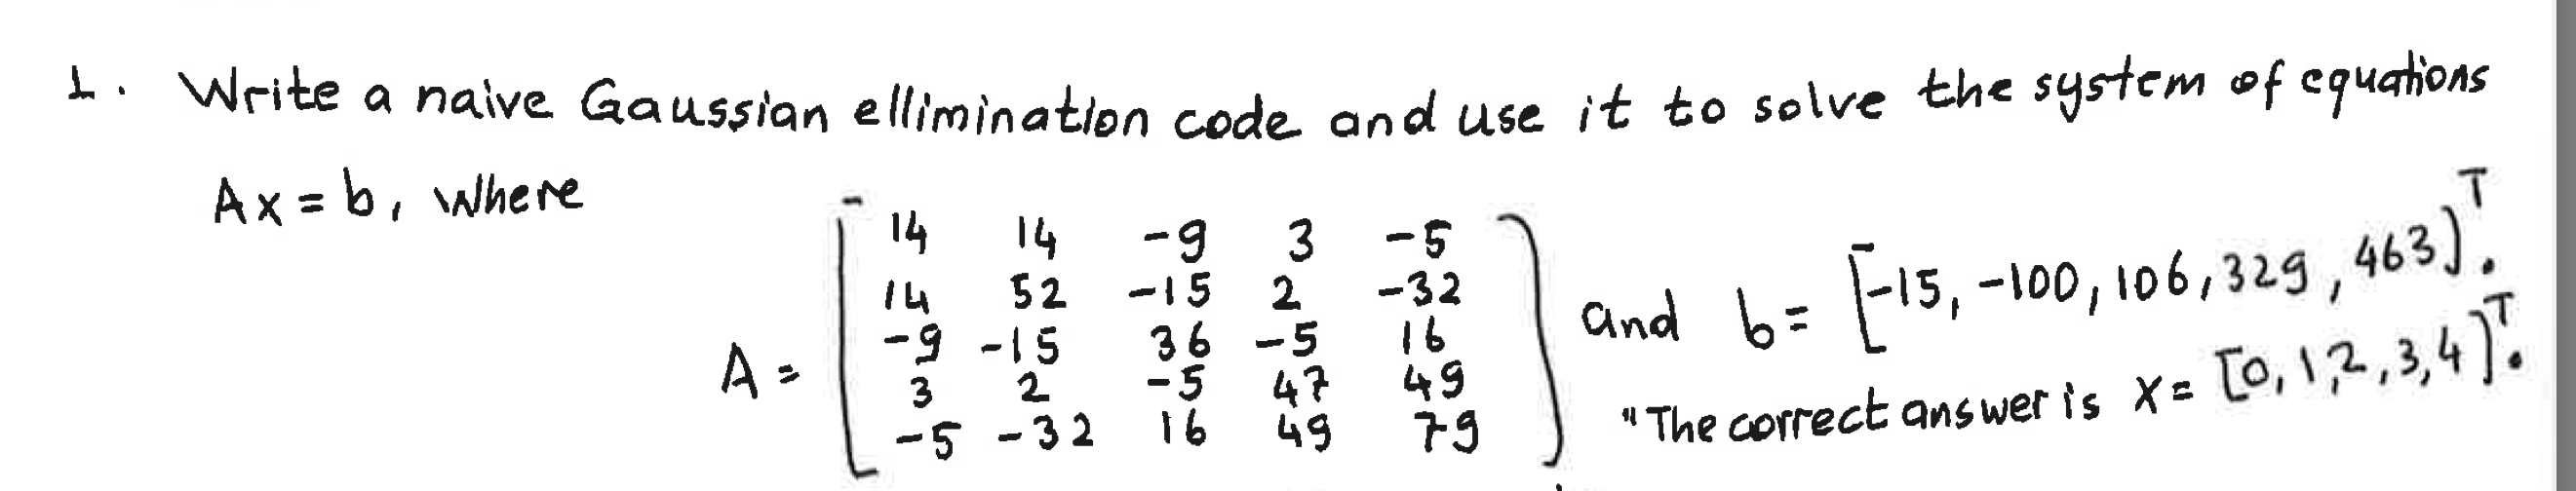 1. Write a naive Gaussian ellimination code and use it to solve the system of equations
Ax = b, where
A = [ 14 14 -9 3 -5
14 52 -15 2 -32
-9 -15 36 -5 16
3 2 -5 47 49
-5 -32 16 49 79 ] and b = [-15, -100, 106, 329, 463]ᵀ.
"The correct answer is x = [0, 1, 2, 3, 4]ᵀ.